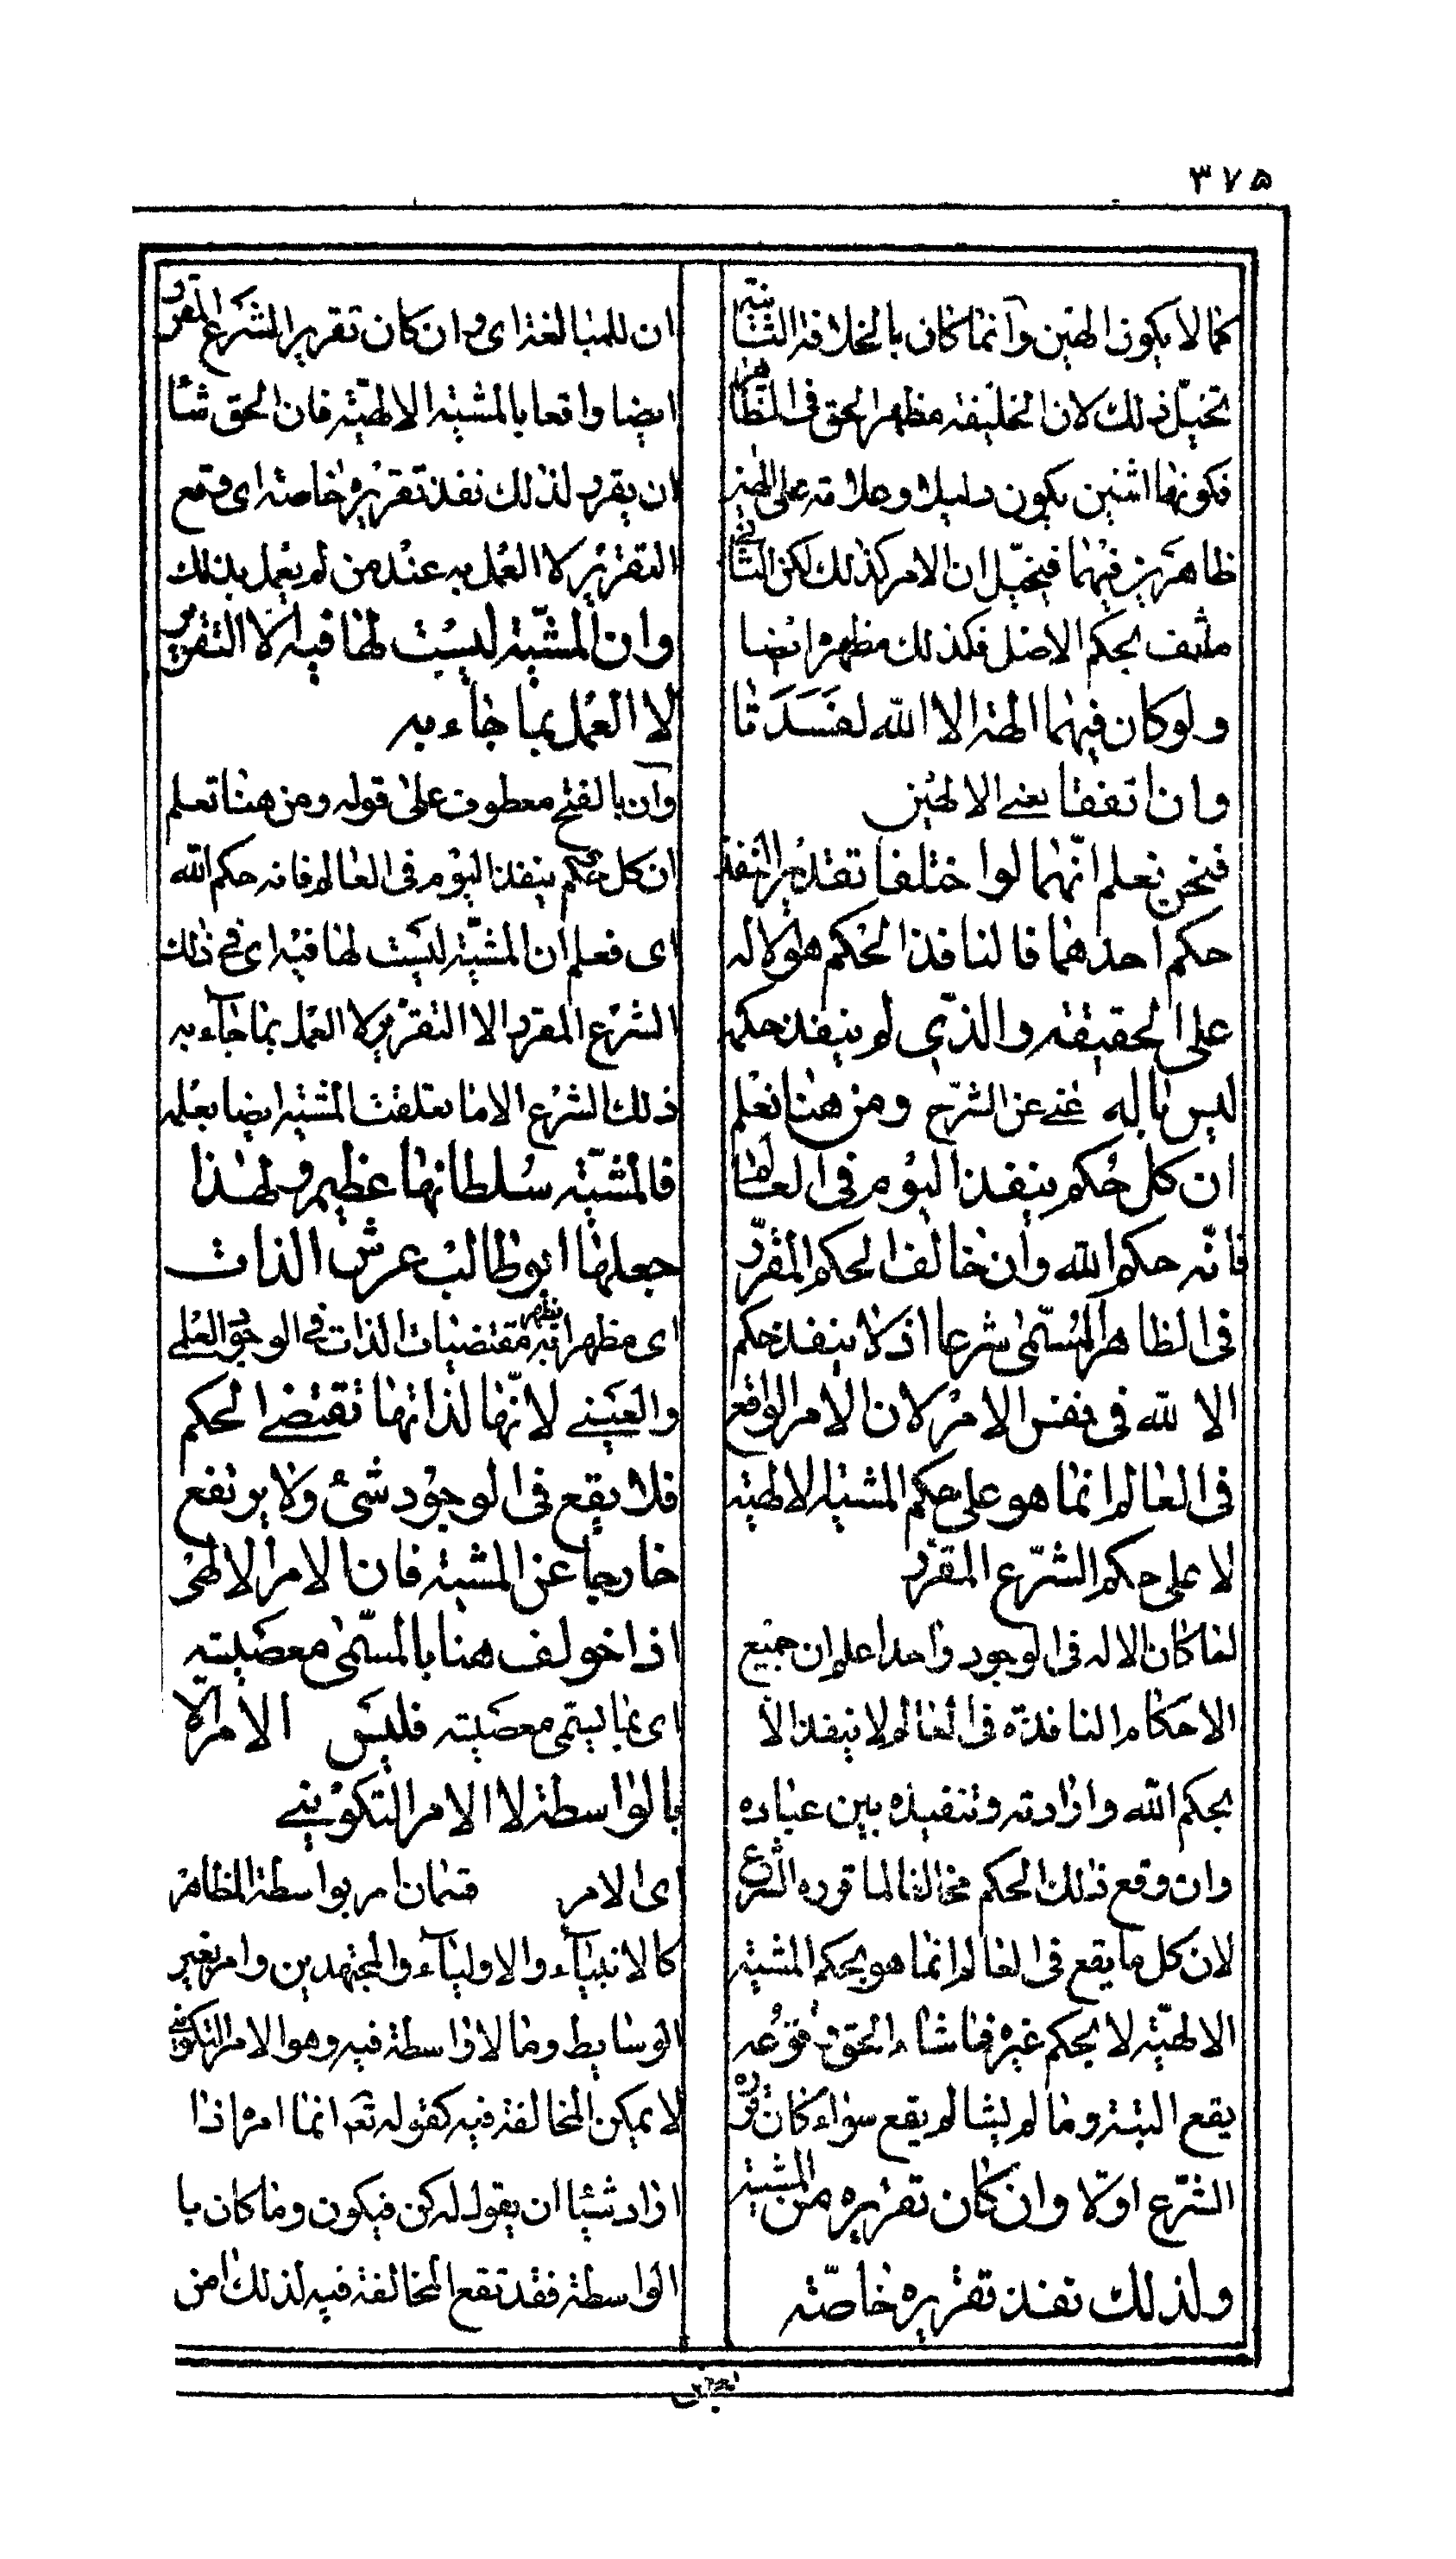 ٣٧٥
كما لا يكون الهين وانما كان بالخلافة الثانية
تخيل ذلك لان الخليفة مظهر الحق فى الظاهر
فكونهما اثنين يكون دليلا وعلامة على الهين
ظاهرين فيهما فيتخيل ان الامر كذلك لكن الثانى
منتف بحكم الاصل فكذلك مظهره ايضا
ولو كان فيهما الهة الا الله لفسدتا
وان اتفقا يعنى الالهين
فنحن نعلم انهما لو اختلفا تقديرا لنفذ
حكم احدهما فالنافذ الحكم هو الاله
على الحقيقة والذى لم ينفذ حكمه
ليس باله غنى عن الشرح ومن هنا نعلم
ان كل حكم ينفذ اليوم فى العالم
فانه حكم الله وان خالف الحكم المقرر
فى الظاهر المسمى شرعا اذ لا ينفذ حكم
الا لله فى نفس الامر لان الامر الواقع
فى العالم انما هو على حكم المشية الالهية
لا على حكم الشرع المقرر
لما كان الاله فى الوجود واحدا علم ان جميع
الاحكام النافذة فى العالم لا ينفذ الا
بحكم الله وارادته وتنفيذه بين عباده
وان وقع ذلك الحكم مخالفا لما قرره الشرع
لان كل ما يقع فى العالم انما هو بحكم المشية
الالهية لا بحكم غيره فما شاء الحق وقوعه
يقع البتة وما لم يشا لم يقع سواء كان قرره
الشرع اولا وان كان تقريره من المشية
ولذلك نفذ تقريره خاصة
ان للمبالغة اى وان كان تقرير الشرع المقرر
ايضا واقعا بالمشية الالهية فان الحق شاء
ان يقرر لذلك نفذ تقريره خاصة اى وقع
التقرير لا العمل به عند من لم يعمل بذلك
وان المشية ليست لها فيه الا التقرير
لا العمل بما جاء به
وان بالفتح معطوف على قوله ومن هنا تعلم
ان كل حكم ينفذ اليوم فى العالم فانه حكم الله
اى فعلم ان المشية ليست لها فيه اى فى ذلك
الشرع المقرر الا التقرير لا العمل بما جاء به
ذلك الشرع الا ما تعلقت المشية ايضا بعلمه
فالمشية سلطانها عظيم ولهذا
جعلها ابو طالب عرش الذات
اى مظهرا يظهر به مقتضيات الذات فى الوجود العلمى
والعينى لانها لذاتها تقتضى الحكم
فلا يقع فى الوجود شئ ولا يرتفع
خارجا عن المشية فان الامر الالهى
اذا خولف هنا بالمسمى معصية
اى بما يسمى معصية فليس الا الامر
بالواسطة لا الامر التكوينى
اى الامر قسمان امر بواسطة المظاهر
كالانبياء والاولياء والمجتهدين وامر بغير
الوسايط وما لا واسطة فيه وهو الامر التكوينى
لا يمكن المخالفة فيه كقوله تعم انما امره اذا
اراد شيئا ان يقول له كن فيكون وما كان با
الواسطة فقد تقع المخالفة فيه لذلك امن